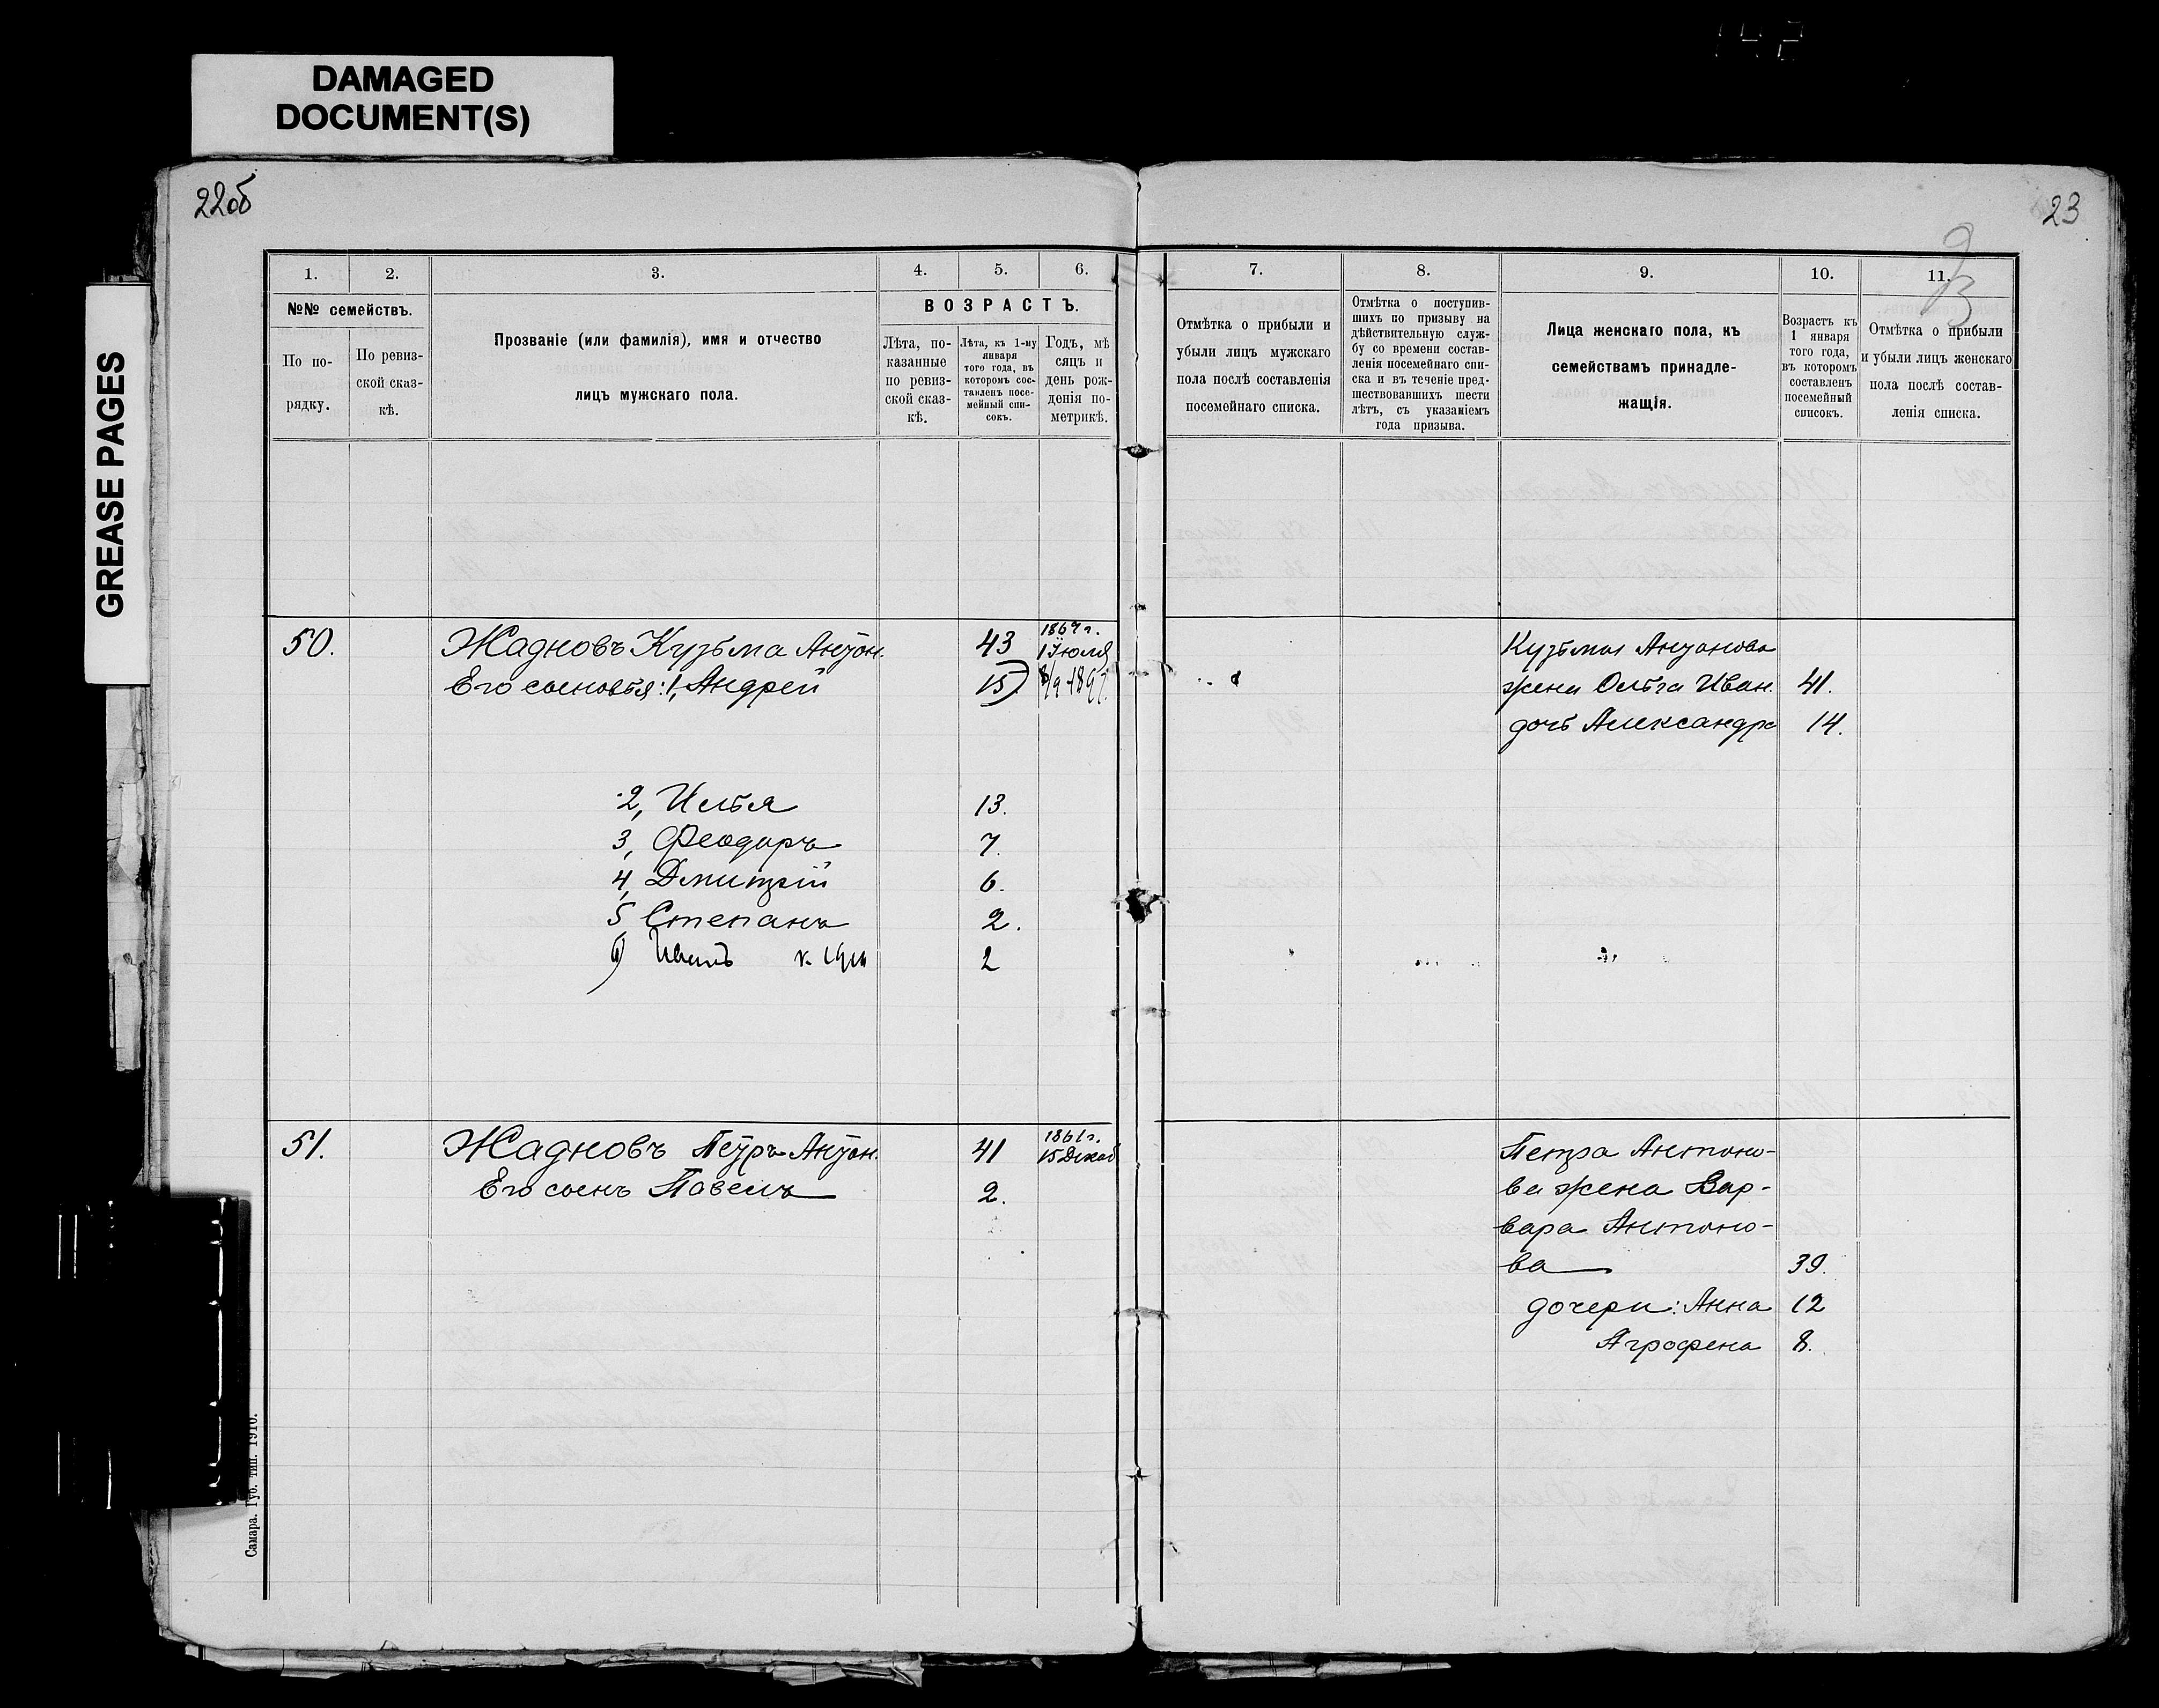 DAMAGED
DOCUMENT(S)
GREASE PAGES
22об
23
1.
2.
3.
4.
5.
6.
7.
8.
9.
10.
11.
№№ семействъ.
По по-
рядку.
По ревиз-
ской сказ-
кѣ.
Прозваніе (или фамилія), имя и отчество
лицъ мужскаго пола.
ВОЗРАСТЪ.
Лѣта, по-
казанные
по ревиз-
ской сказ-
кѣ.
Лѣта, къ 1-му
января
того года, въ
которомъ сос-
тавленъ посе-
мейный спи-
сокъ.
Годъ, мѣ
сяцъ и
день рож-
денія по-
метрикѣ.
Отмѣтка о прибыли и
убыли лицъ мужскаго
пола послѣ составленія
посемейнаго списка.
Отмѣтка о поступив-
шихъ по призыву на
дѣйствительную служ-
бу со времени состав-
ленія посемейнаго спи-
ска и въ теченіе пред-
шествовавшихъ шести
лѣтъ, съ указаніемъ
года призыва.
Лица женскаго пола, къ
семействамъ принадле-
жащія.
Возрастъ къ
1 января
того года,
въ которомъ
составленъ
посемейный
списокъ.
Отмѣтка о прибыли
и убыли лицъ женскаго
пола послѣ состав-
ленія списка.
50. Жадновъ Кузьма Антон. 43 1 Іюля
Его сыновья: 1, Андрей 15
2, Илья 13.
3, Феодоръ 7.
4, Дмитрій 6.
5 Степанъ 2.
6) Иванъ 2
Кузьмы Антонова
жена Ольга Иван. 41.
дочь Александра 14.
51. Жадновъ Петръ Антон. 41 1861 г. 15 Декаб
Его сынъ Павелъ 2.
Петра Антоно-
ва жена Вар-
вара Антоно-
ва 39.
дочери: Анна 12
Агрофена 8.
Самара. Губ. тип. 1910.